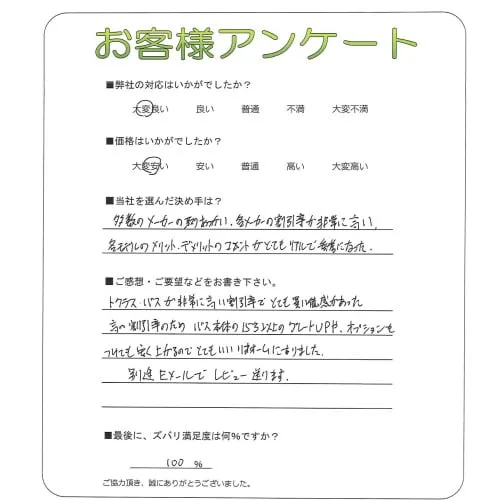 お客様アンケート
■弊社の対応はいかがでしたか？
大変良い 良い 普通 不満 大変不満
■価格はいかがでしたか？
大変安い 安い 普通 高い 大変高い
■当社を選んだ決め手は？
多数のメーカーの取りあつかい、各メーカーの割引率が非常に高い、
各モデルのメリット、デメリットのコメントがとてもリアルで参考になった。
■ご感想・ご要望などをお書き下さい。
トクラス・バスが非常に高い割引率でとても買い得感があった
高い割引率のため バス本体の グレードUPや、オプションも
つけても安く上がるのでとてもいいリフォームになりました。
別途EメールでレビューI送ります。
■最後に、ズバリ満足度は何％ですか？
100 %
ご協力頂き、誠にありがとうございました。